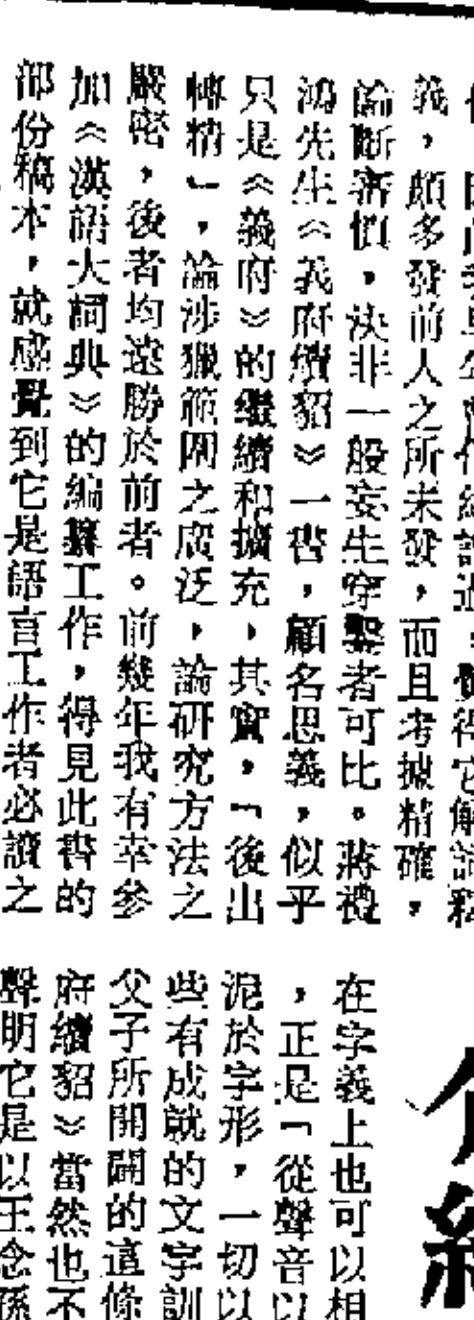 義，頗多發前人之所未發，而且考據精確，
論斷審慎，決非一般妄生穿鑿者可比。蔣禮
鴻先生《義府續貂》一書，顧名思義，似乎
只是《義府》的繼續和擴充，其實，「後出
轉精」，論涉獵範圍之廣泛，論研究方法之
嚴密，後者均遠勝於前者。前幾年我有幸參
加《漢語大詞典》的編纂工作，得見此書的
部份稿本，就感覺到它是語言工作者必讀之
在字義上也可以相
，正是「從聲音以
泥於字形，一切以
些有成就的文字訓
父子所開闢的這條
府續貂》當然也不
聲明它是以王念孫